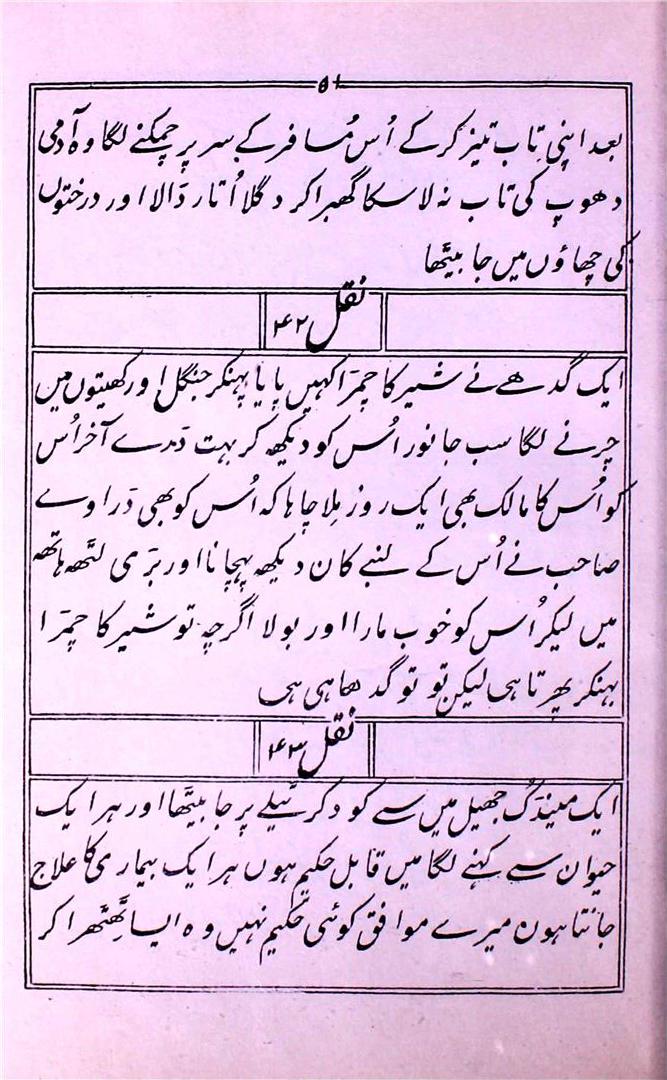 ۵۱
بعد اپنی تاب تیز کر کے اُس مُسافر کے سر پر چمکنے لگا وہ آدمی
دھوپ کی تاب نہ لا سکا گھبرا کر دگلا اُتار ڈالا اور درختوں
کی چھاؤں میں جا بیٹھا
نقل ۴۲
ایک گدھے نے شیر کا چمڑا کہیں پایا پہنکر جنگل اور کھیتوں میں
چرنے لگا سب جانور اُس کو دیکھ کر بہت ڈرے آخر اُس
کو اُس کا مالک بھی ایک روز ملا چاہا کہ اُس کو بھی ڈراوے
صاحب نے اُس کے لنبے کان دیکھ پہچانا اور بڑی لٹھ ہاتھ
میں لیکر اُس کو خوب مارا اور بولا اگرچہ تو شیر کا چمڑا
پہنکر پھرتا ہی لیکن تو تو گدھا ہی ہی
نقل ۴۳
ایک مینڈک جھیل میں سے کود کر ٹیلے پر جا بیٹھا اور ہر ایک
حیوان سے کہنے لگا میں قابل حکیم ہوں ہر ایک بیماری کا علاج
جانتا ہون میرے موافق کوئی حکیم نہیں وہ ایسا ٹھٹھرا کر